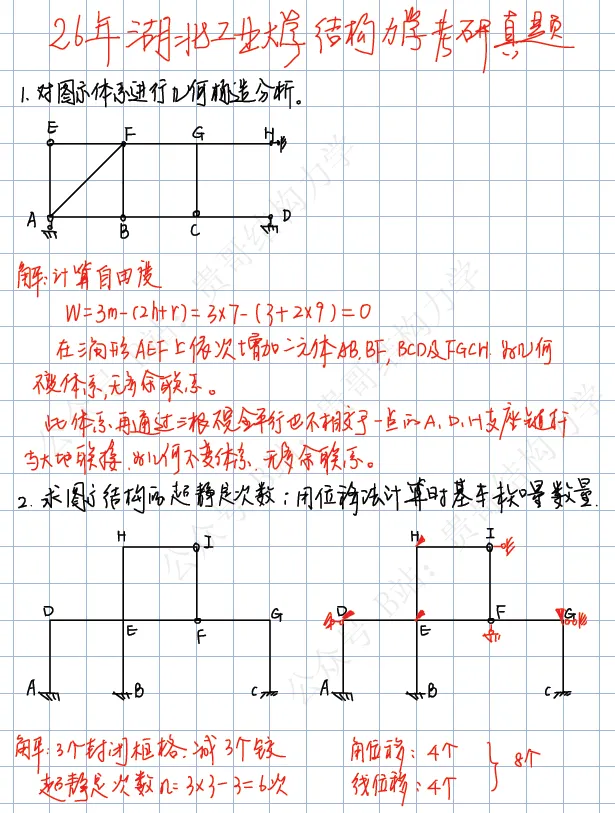 26年湖北工业大学结构力学考研真题
1.对图示体系进行几何构造分析。
E F G H
A B C D
解:计算自由度
W=3m-(2h+r)=3×7-(3+2×9)=0
在三角形AEF上依次增加二元体AB,BF,BCD及FGCH.为几何
不变体系,无多余联系。
此体系再通过三根不完全平行也不相交于一点的A、D、H支座链杆
与大地联接.为几何不变体系,无多余联系。
2.求图示结构的超静定次数;用位移法计算时基本未知量数量.
H I H I
D E F G D E F G
A B C A B C
解:3个封闭框格.减3个铰
超静定次数n=3×3-3=6次
角位移:4个
线位移:4个
8个
公众号 B站:贵哥结构力学